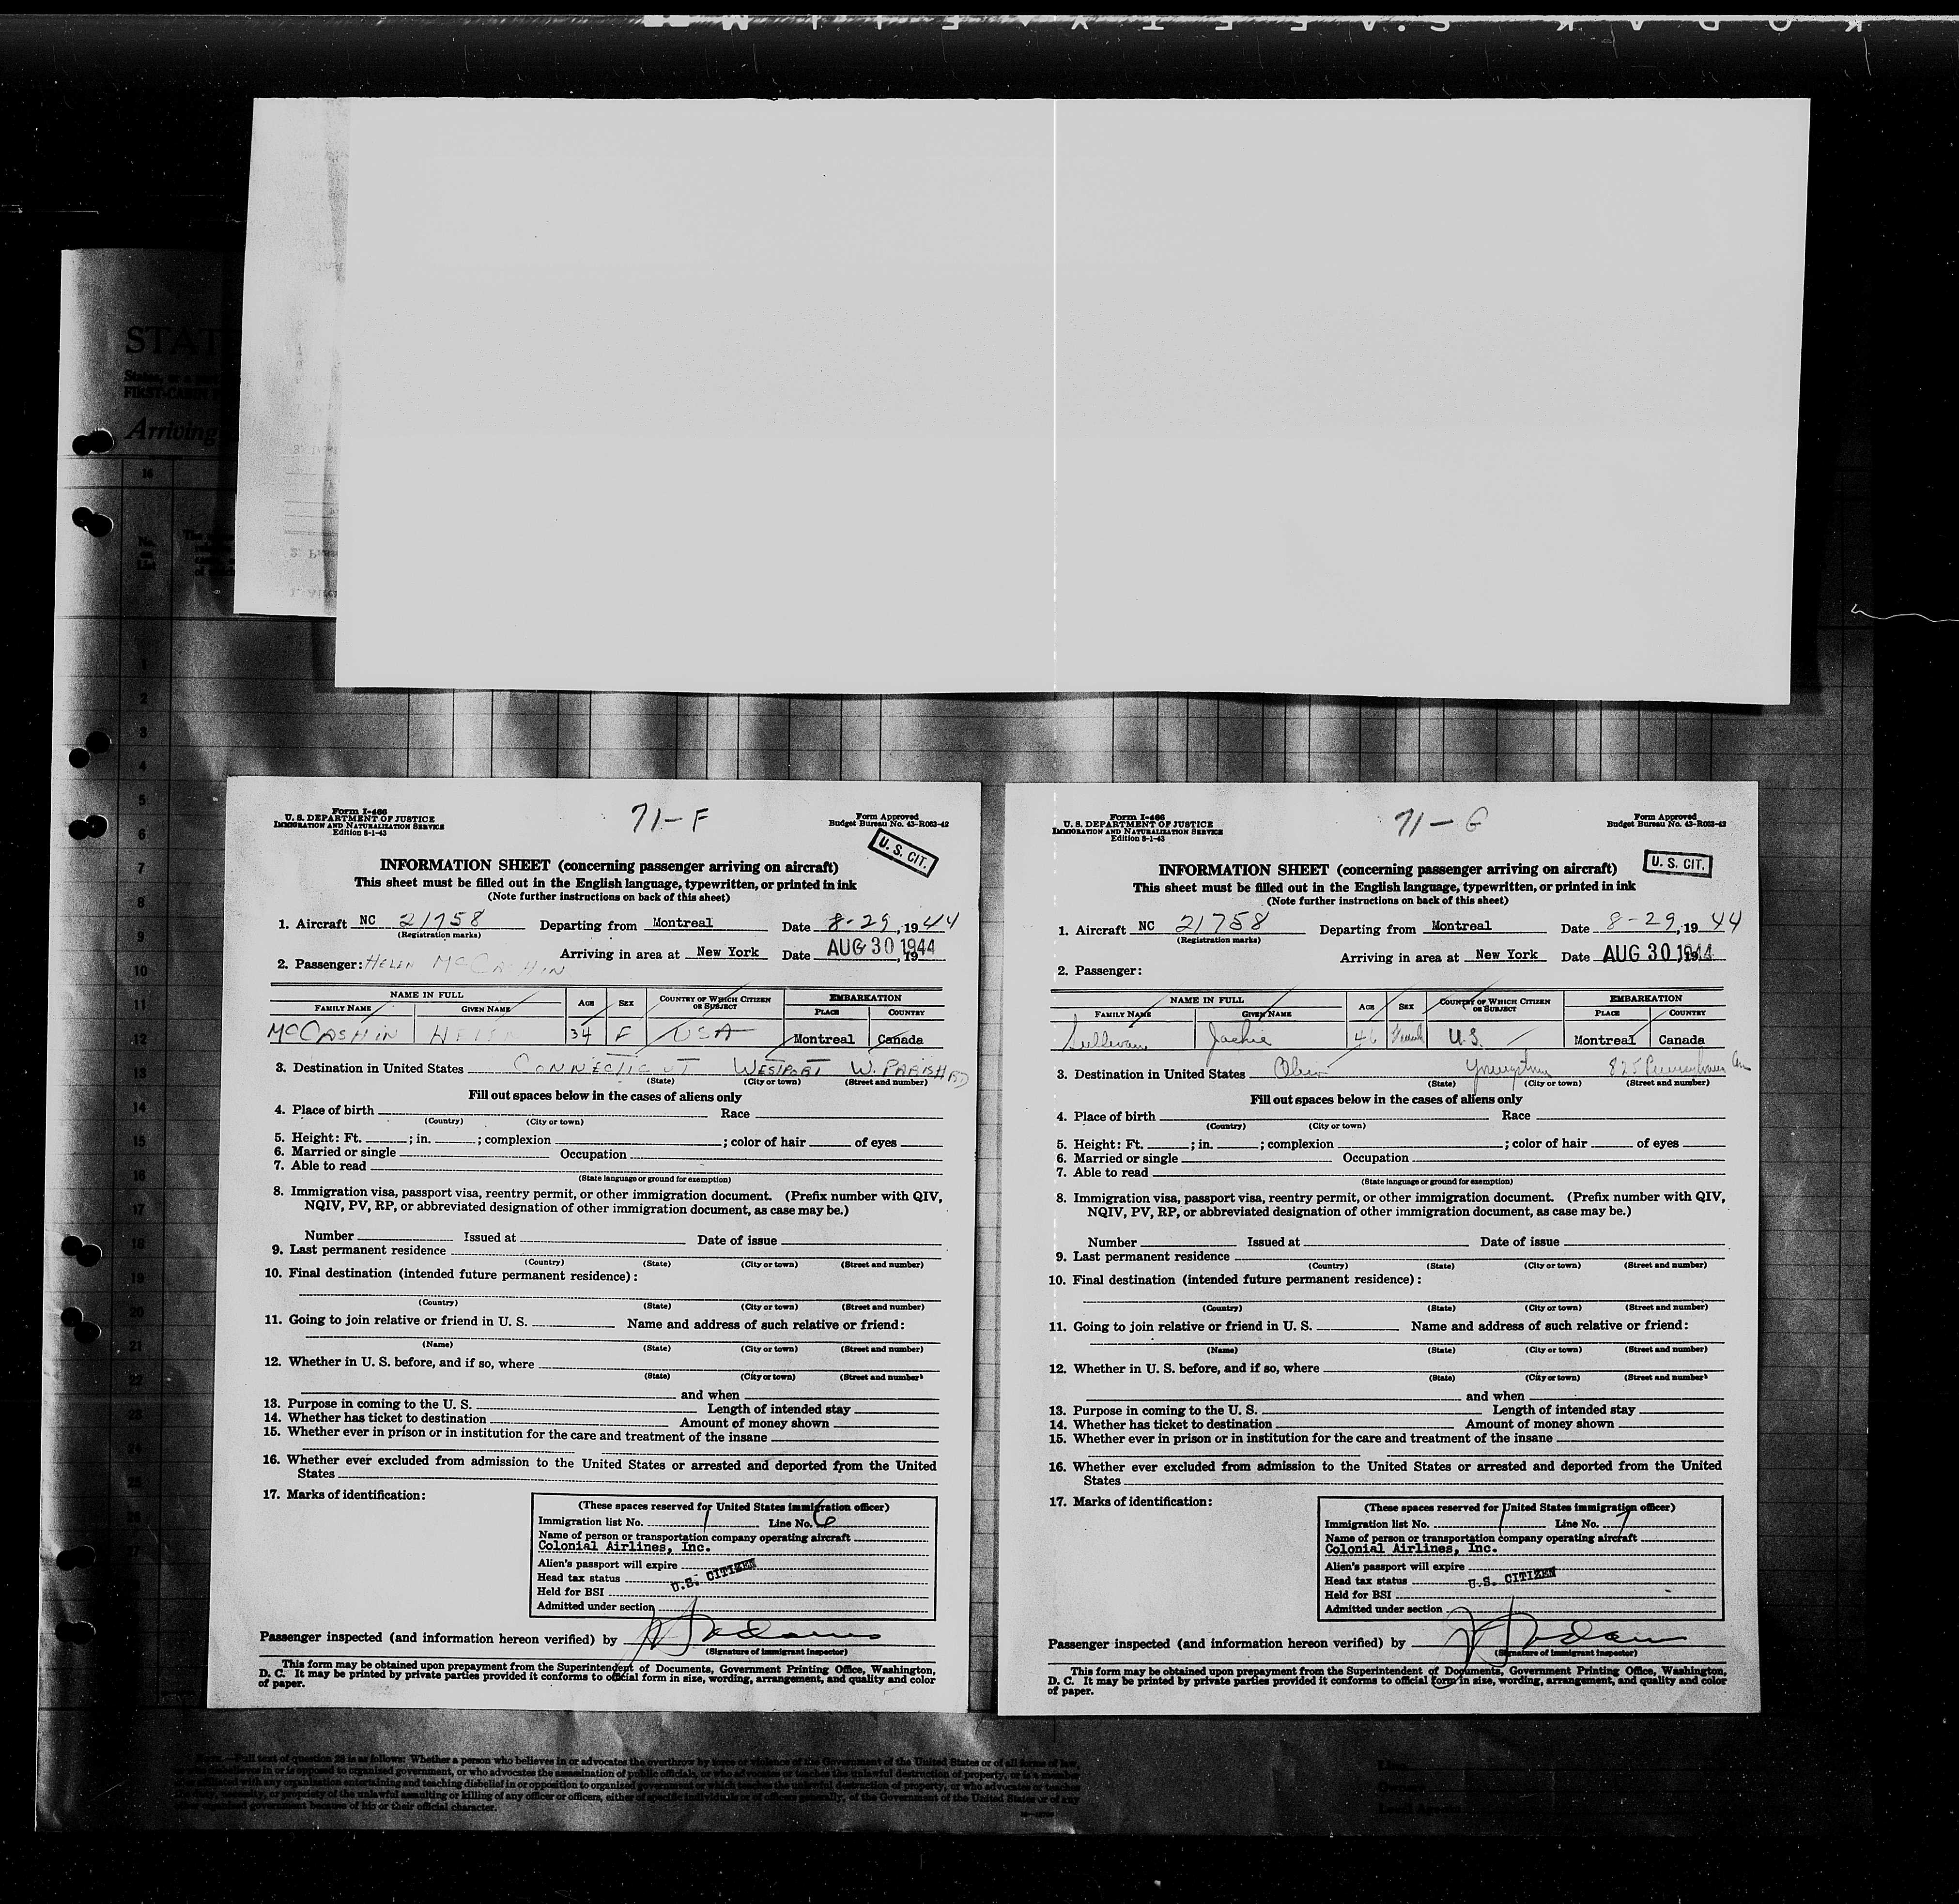 KODAK SAFETY FILM
STAT
FIRST-CABIN
Arriving
16
1
2
3
4
5
6
7
8
9
10
11
12
13
14
15
16
17
18
19
20
21
22
23
24
25
26
Form I-466
U. S. DEPARTMENT OF JUSTICE
IMMIGRATION AND NATURALIZATION SERVICE
Edition 8-1-43
71-F
Form Approved
Budget Bureau No. 43-R063-42
U. S. CIT.
INFORMATION SHEET (concerning passenger arriving on aircraft)
This sheet must be filled out in the English language, typewritten, or printed in ink
(Note further instructions on back of this sheet)
1. Aircraft NC 21758 Departing from Montreal Date 8-29, 1944
(Registration marks)
Arriving in area at New York Date AUG 30 1944, 19
2. Passenger: HELEN MCCASHIN
NAME IN FULL AGE SEX COUNTRY OF WHICH CITIZEN OR SUBJECT EMBARKATION
FAMILY NAME GIVEN NAME PLACE COUNTRY
MCCASHIN HELEN 34 F USA Montreal Canada
3. Destination in United States CONNECTICUT WESTPORT W. PARISH RD
(State) (City or town) (Street and number)
Fill out spaces below in the cases of aliens only
4. Place of birth Race
(Country) (City or town)
5. Height: Ft. ; in. ; complexion ; color of hair of eyes
6. Married or single Occupation
7. Able to read
(State language or ground for exemption)
8. Immigration visa, passport visa, reentry permit, or other immigration document. (Prefix number with QIV,
NQIV, PV, RP, or abbreviated designation of other immigration document, as case may be.)
Number Issued at Date of issue
9. Last permanent residence
(Country) (State) (City or town) (Street and number)
10. Final destination (intended future permanent residence):
(Country) (State) (City or town) (Street and number)
11. Going to join relative or friend in U. S. Name and address of such relative or friend:
(Name) (State) (City or town) (Street and number)
12. Whether in U. S. before, and if so, where
(State) (City or town) (Street and number)
and when
13. Purpose in coming to the U. S. Length of intended stay
14. Whether has ticket to destination Amount of money shown
15. Whether ever in prison or in institution for the care and treatment of the insane
16. Whether ever excluded from admission to the United States or arrested and deported from the United
States
17. Marks of identification:
(These spaces reserved for United States immigration officer)
Immigration list No. 1 Line No. 6
Name of person or transportation company operating aircraft
Colonial Airlines, Inc.
Alien's passport will expire
Head tax status U.S. CITIZEN
Held for BSI
Admitted under section
Passenger inspected (and information hereon verified) by
(Signature of immigrant inspector)
This form may be obtained upon prepayment from the Superintendent of Documents, Government Printing Office, Washington,
D. C. It may be printed by private parties provided it conforms to official form in size, wording, arrangement, and quality and color
of paper.
Form I-466
U. S. DEPARTMENT OF JUSTICE
IMMIGRATION AND NATURALIZATION SERVICE
Edition 8-1-43
71-G
Form Approved
Budget Bureau No. 43-R063-42
U. S. CIT.
INFORMATION SHEET (concerning passenger arriving on aircraft)
This sheet must be filled out in the English language, typewritten, or printed in ink
(Note further instructions on back of this sheet)
1. Aircraft NC 21758 Departing from Montreal Date 8-29, 1944
(Registration marks)
Arriving in area at New York Date AUG 30 1944
2. Passenger:
NAME IN FULL AGE SEX COUNTRY OF WHICH CITIZEN OR SUBJECT EMBARKATION
FAMILY NAME GIVEN NAME PLACE COUNTRY
Sullivan Jackie 46 Female U.S. Montreal Canada
3. Destination in United States Ohio Youngstown 825 Pennsylvania Ave
(State) (City or town) (Street and number)
Fill out spaces below in the cases of aliens only
4. Place of birth Race
(Country) (City or town)
5. Height: Ft. ; in. ; complexion ; color of hair of eyes
6. Married or single Occupation
7. Able to read
(State language or ground for exemption)
8. Immigration visa, passport visa, reentry permit, or other immigration document. (Prefix number with QIV,
NQIV, PV, RP, or abbreviated designation of other immigration document, as case may be.)
Number Issued at Date of issue
9. Last permanent residence
(Country) (State) (City or town) (Street and number)
10. Final destination (intended future permanent residence):
(Country) (State) (City or town) (Street and number)
11. Going to join relative or friend in U. S. Name and address of such relative or friend:
(Name) (State) (City or town) (Street and number)
12. Whether in U. S. before, and if so, where
(State) (City or town) (Street and number)
and when
13. Purpose in coming to the U. S. Length of intended stay
14. Whether has ticket to destination Amount of money shown
15. Whether ever in prison or in institution for the care and treatment of the insane
16. Whether ever excluded from admission to the United States or arrested and deported from the United
States
17. Marks of identification:
(These spaces reserved for United States immigration officer)
Immigration list No. 1 Line No. 7
Name of person or transportation company operating aircraft
Colonial Airlines, Inc.
Alien's passport will expire
Head tax status U.S. CITIZEN
Held for BSI
Admitted under section
Passenger inspected (and information hereon verified) by
(Signature of immigrant inspector)
This form may be obtained upon prepayment from the Superintendent of Documents, Government Printing Office, Washington,
D. C. It may be printed by private parties provided it conforms to official form in size, wording, arrangement, and quality and color
of paper.
NOTE.—Full text of question 28 is as follows: Whether a person who believes in or advocates the overthrow by force or violence of the Government of the United States or of all forms of law,
disbelieves in or is opposed to organized government, or who advocates the assassination of public officials, or who advocates or teaches the unlawful destruction of property, or is a member
affiliated with any organization entertaining and teaching disbelief in or opposition to organized government or which teaches the unlawful destruction of property, or who advocates or teaches
duty, necessity, or propriety of the unlawful assaulting or killing of any officer or officers, either of specific individuals or of officers generally, of the Government of the United States or of any
other organized government because of his or their official character.